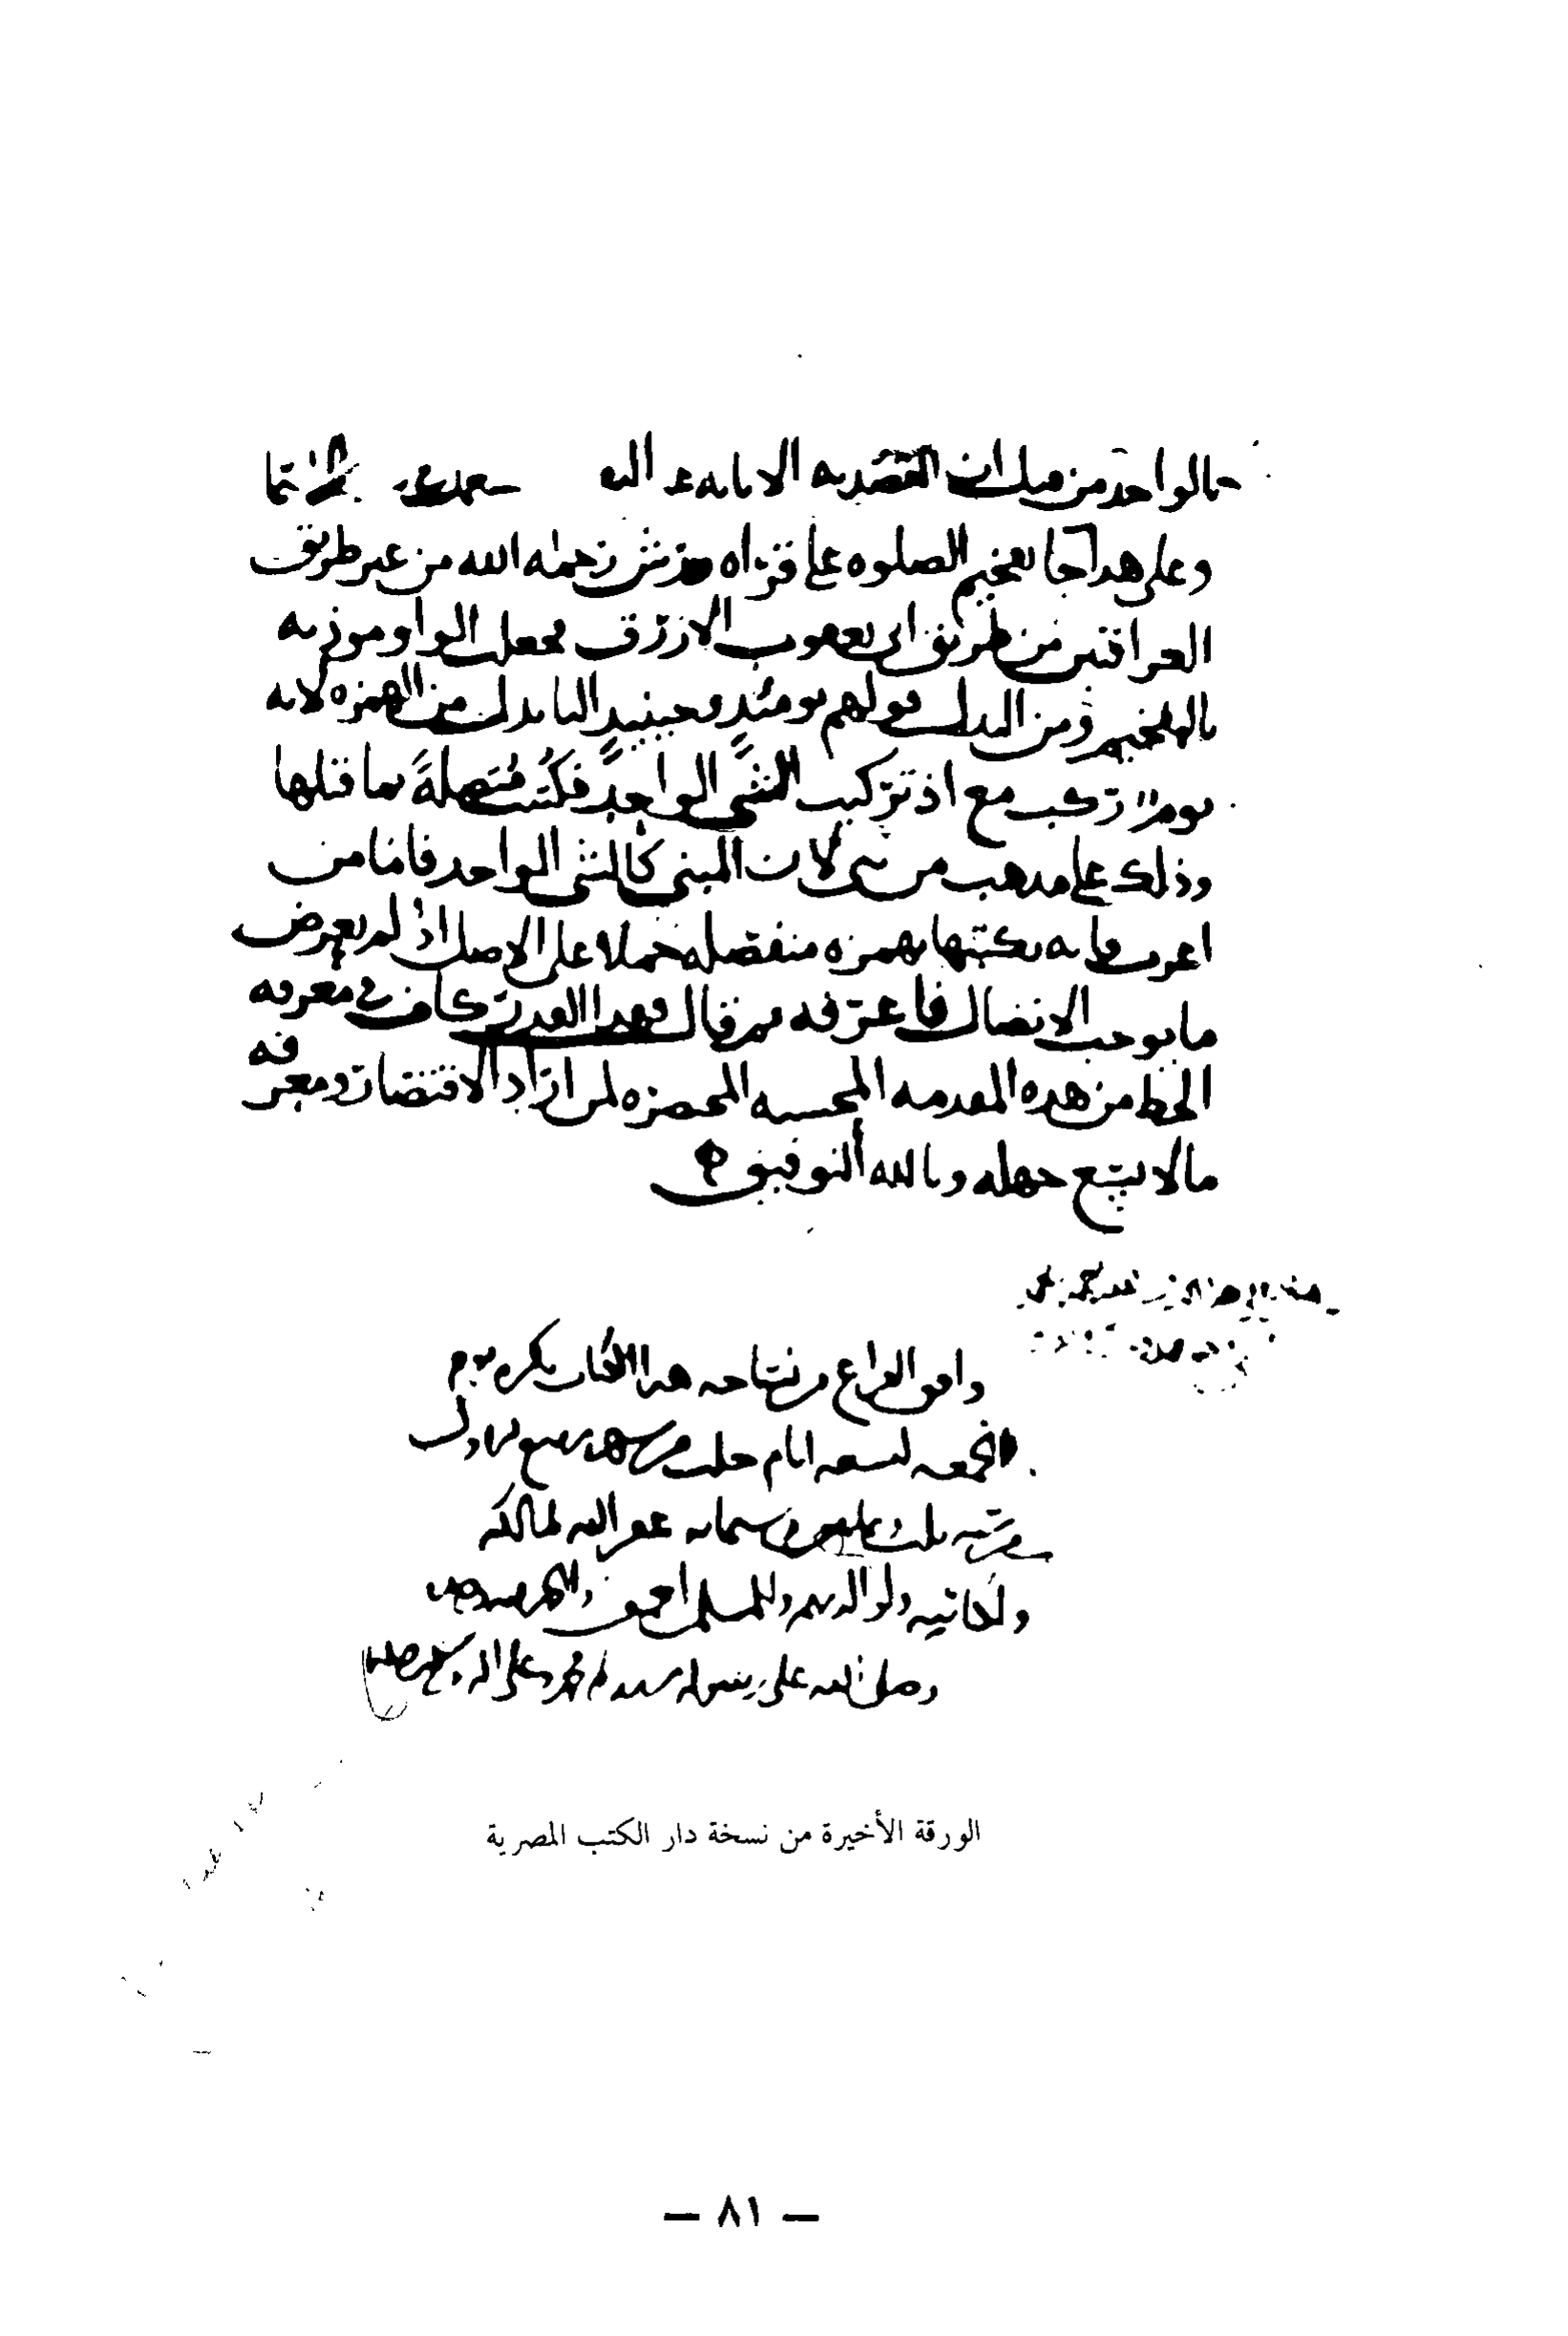 بالواحد من قبل ان القصد به الابانه عن
وعلى هذا جا تفخيم الصلوه على قراه ورش رحمه الله من غير طريق
العراقيين من طريق ابي يعقوب الازرق لجعل الواو موذنه
بالتفخيم ومن البدل قولهم يومئذ وحينيذ اليا بدل من الهمزه لانه
يوم ركب مع اذ تركيب الشي الواحد فكتبت متصلة بما قبلها
وذلك على مذهب من بنى لان المبنى كالشي الواحد فاما من
اعرب فانه يكتبها بهمزه منفصله حملا على الاصل اذ لم يعرض
ما يوجب الاتصال فاعرفه ثم قال فهذا القدر كاف في معرفه
الخط من هذه المقدمه المحسبه المحصره لمن اراد الاقتصار ومعرفه
ما لا يسع جهله وبالله التوفيق
وافق الفراغ من نساخه هذا الكتاب بكره يوم
الجمعه لتسعه ايام خلت من شهر ربيع الاول
سنه وستمايه غفر الله لمالكه
ولكاتبه ولوالديهم وللمسلمين اجمعين والحمد لله وحده
وصلى الله على رسوله سيدنا محمد وعلى اله
الورقة الأخيرة من نسخة دار الكتب المصرية
— ٨١ —